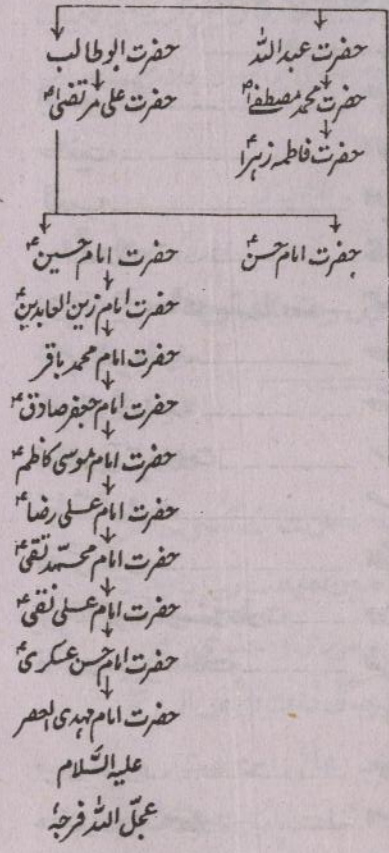 حضرت عبداللہ حضرت ابوطالب
حضرت محمد مصطفےٰؐ حضرت علی مرتضیٰؑ
حضرت فاطمہ زہراؑ
حضرت امام حسنؑ حضرت امام حسینؑ
حضرت امام زین العابدینؑ
حضرت امام محمد باقر
حضرت امام جعفر صادقؑ
حضرت امام موسی کاظمؑ
حضرت امام علی رضاؑ
حضرت امام محمّد تقیؑ
حضرت امام علی نقیؑ
حضرت امام حسن عسکریؑ
حضرت امام مہدی العصر
علیہ السَّلام
عجّل اللہ فرجہٗ